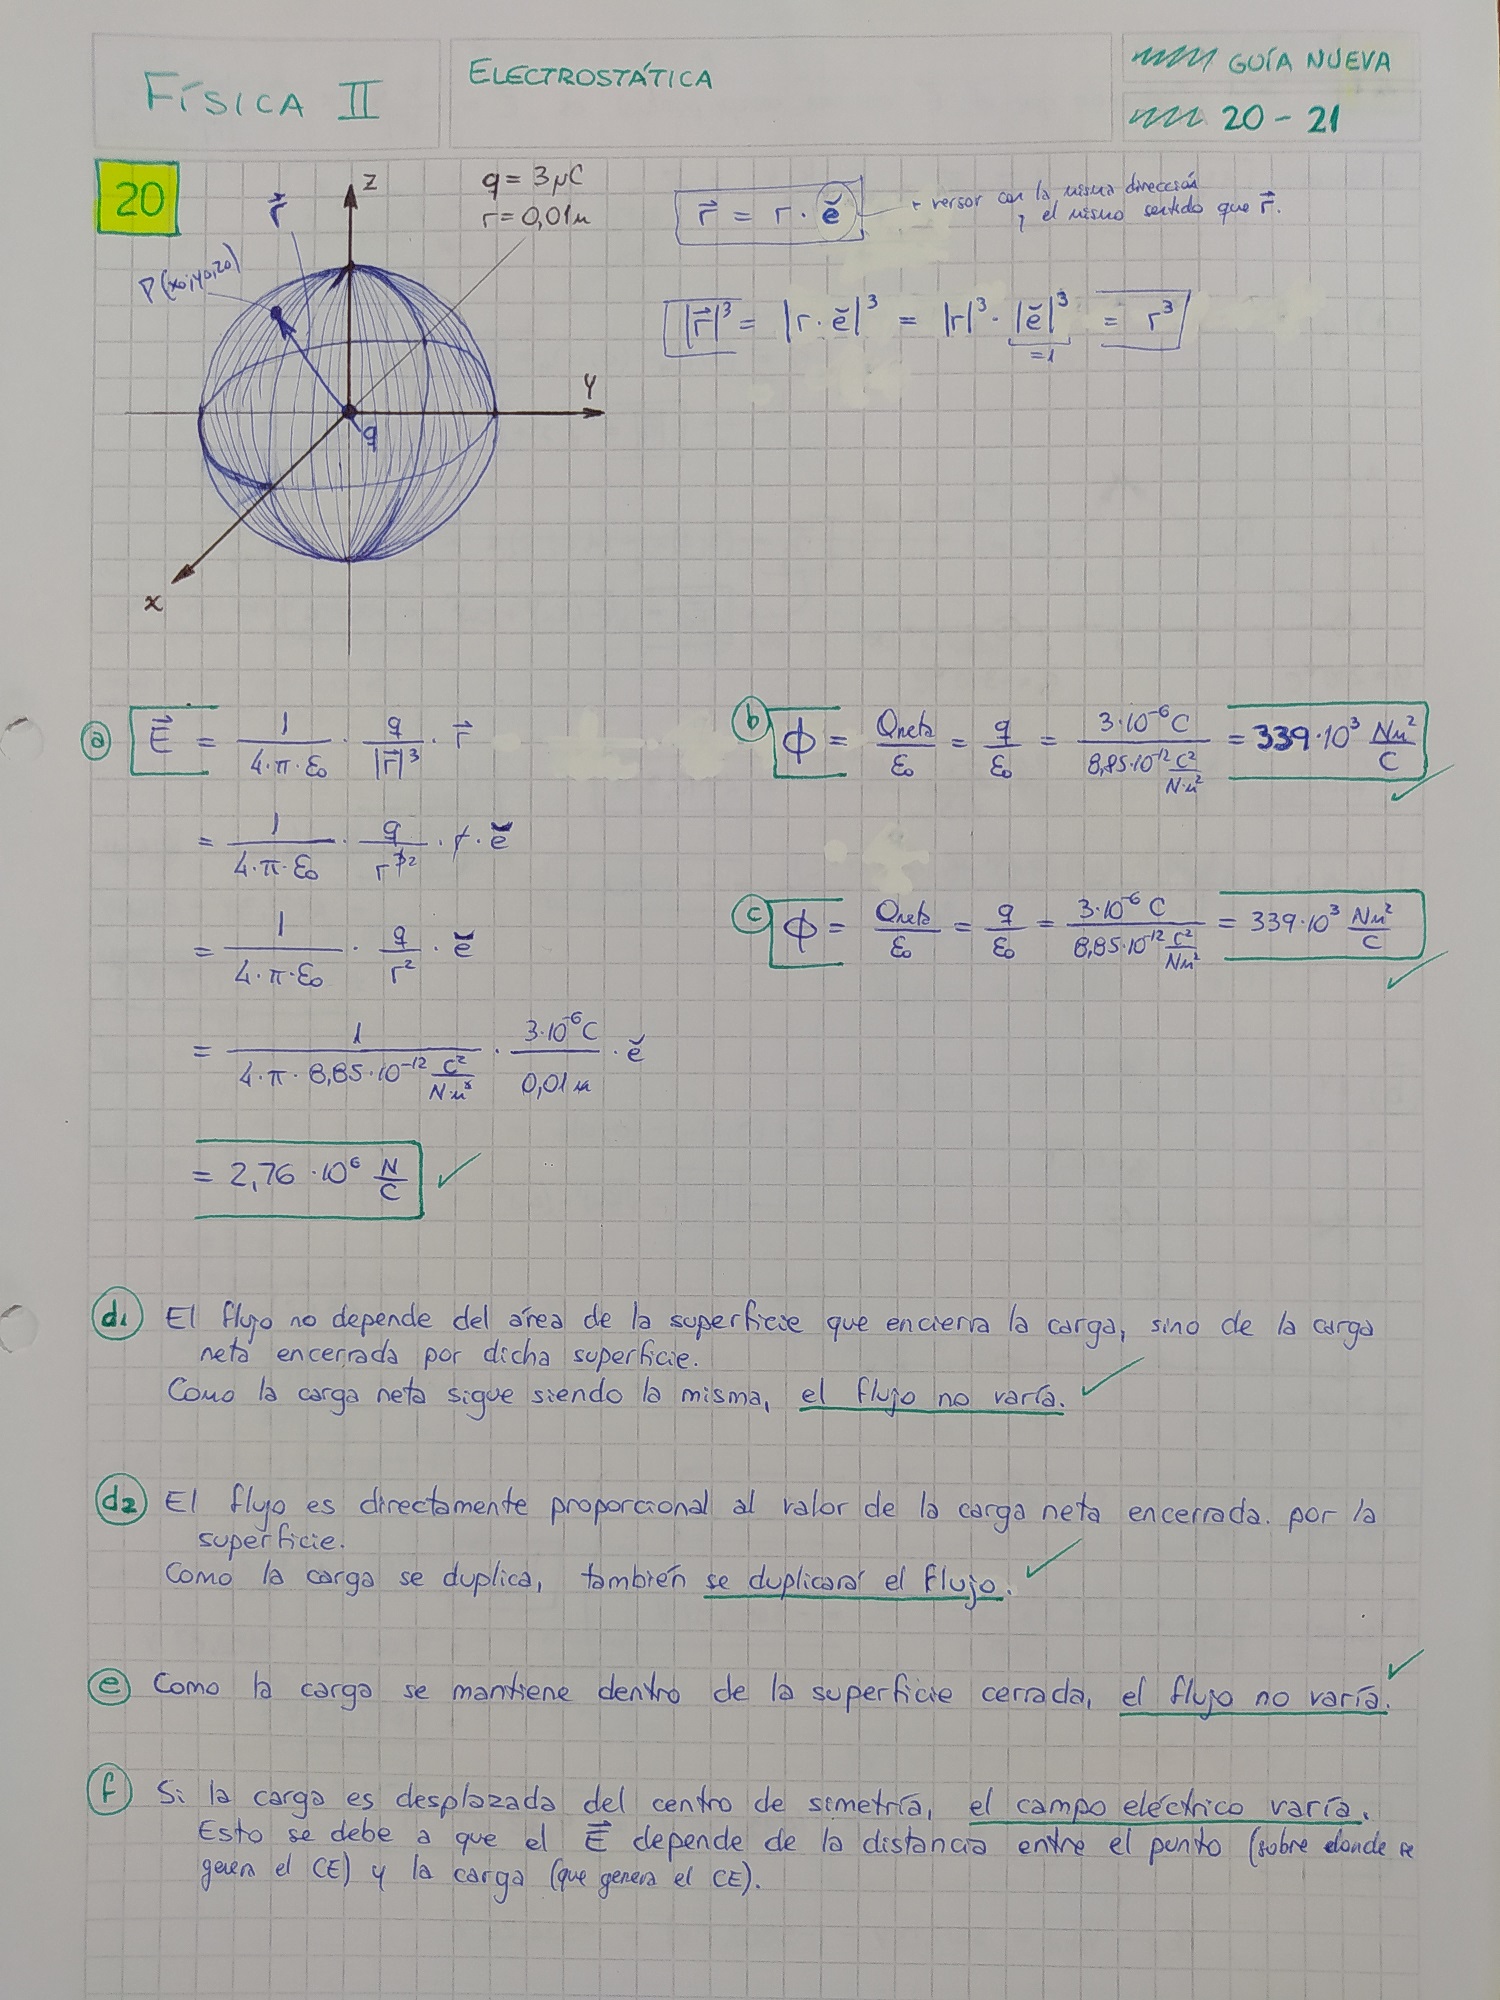 FÍSICA II
ELECTROSTÁTICA
GUÍA NUEVA
20 - 21
20
z
r⃗
q = 3μC
r = 0,01m
P(x0;y0;z0)
y
q
x
r⃗ = r · ĕ
versor con la misma dirección
y el mismo sentido que r⃗.
|r⃗|³ = |r · ĕ|³ = |r|³ · |ĕ|³ = r³
=1
a E⃗ = 1/(4·π·ε0) · q/|r⃗|³ · r⃗
= 1/(4·π·ε0) · q/r³² · r · ĕ
= 1/(4·π·ε0) · q/r² · ĕ
= 1/(4·π·8,85·10⁻¹² C²/(N·m²)) · 3·10⁻⁶C/0,01m · ĕ
= 2,76 ·10⁶ N/C
b ϕ = Qneta/ε0 = q/ε0 = 3·10⁻⁶C/(8,85·10⁻¹² C²/(N·m²)) = 339·10³ Nm²/C
c ϕ = Qneta/ε0 = q/ε0 = 3·10⁻⁶C/(8,85·10⁻¹² C²/(Nm²)) = 339·10³ Nm²/C
d1 El flujo no depende del área de la superficie que encierra la carga, sino de la carga
neta encerrada por dicha superficie.
Como la carga neta sigue siendo la misma, el flujo no varía.
d2 El flujo es directamente proporcional al valor de la carga neta encerrada. por la
superficie.
Como la carga se duplica, también se duplicará el flujo.
e Como la carga se mantiene dentro de la superficie cerrada, el flujo no varía.
f Si la carga es desplazada del centro de simetría, el campo eléctrico varía.
Esto se debe a que el E⃗ depende de la distancia entre el punto (sobre donde se
genera el CE) y la carga (que genera el CE).